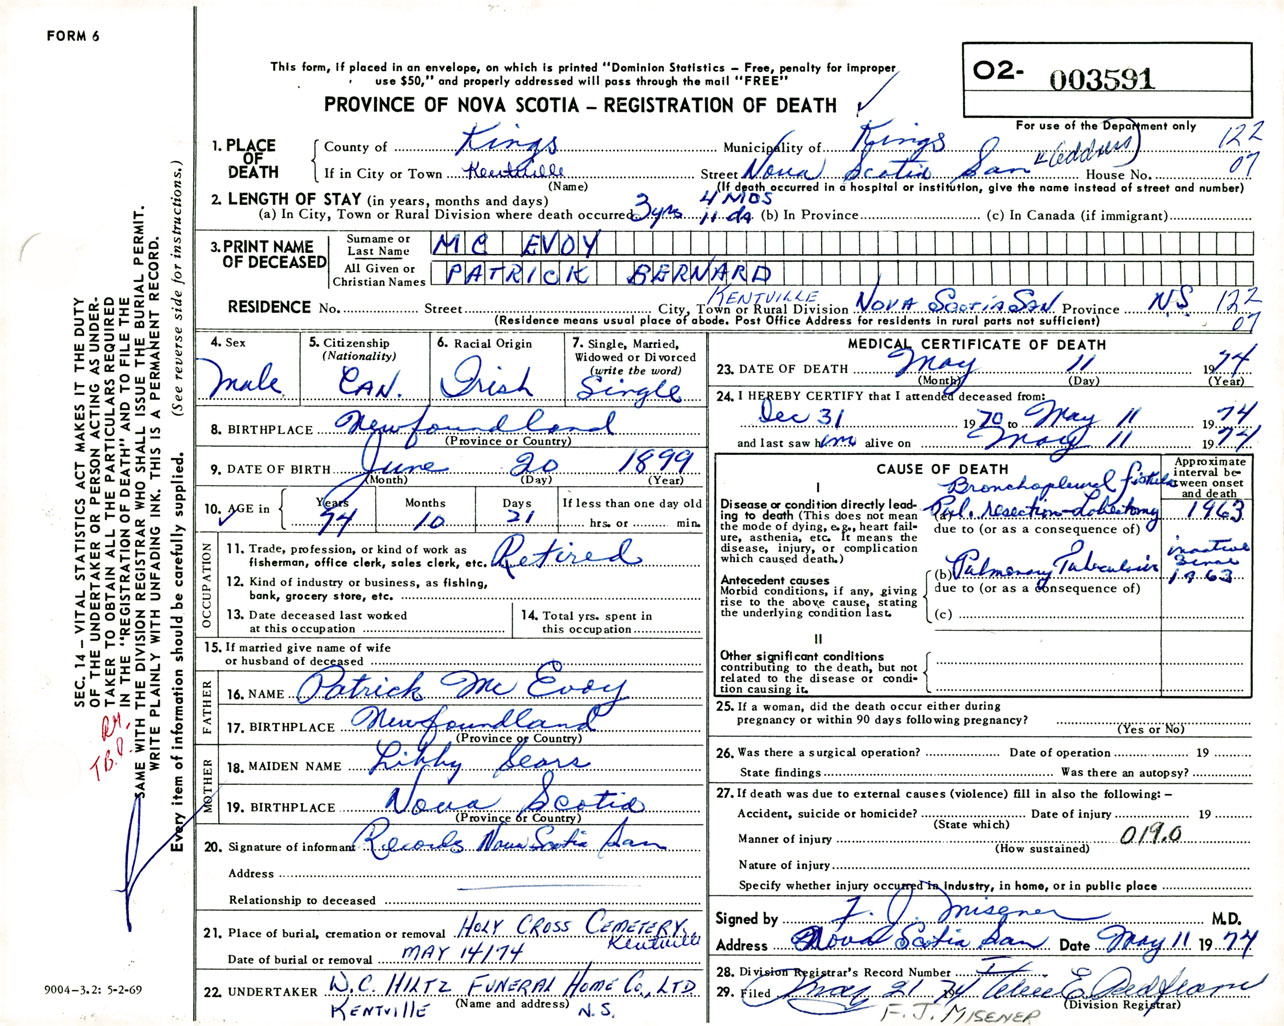 FORM 6
This form, if placed in an envelope, on which is printed "Dominion Statistics – Free, penalty for improper
use $50," and properly addressed will pass through the mail "FREE"
O2- 003591
PROVINCE OF NOVA SCOTIA – REGISTRATION OF DEATH
For use of the Department only
122
07
1. PLACE OF DEATH
County of Kings Municipality of Kings
If in City or Town Kentville Street Nova Scotia San (address) House No.
(Name) (If death occurred in a hospital or institution, give the name instead of street and number)
2. LENGTH OF STAY (in years, months and days)
(a) In City, Town or Rural Division where death occurred 3 yrs 4 MOS 11 da (b) In Province (c) In Canada (if immigrant)
3. PRINT NAME OF DECEASED
Surname or Last Name MC EVOY
All Given or Christian Names PATRICK BERNARD
RESIDENCE No. Street City, Town or Rural Division KENTVILLE NOVA SCOTIA SAN Province N.S. 122
07
(Residence means usual place of abode. Post Office Address for residents in rural parts not sufficient)
4. Sex
Male
5. Citizenship
(Nationality)
CAN.
6. Racial Origin
Irish
7. Single, Married,
Widowed or Divorced
(write the word)
Single
8. BIRTHPLACE Newfoundland
(Province or Country)
9. DATE OF BIRTH June 20 1899
(Month) (Day) (Year)
10. AGE in
Years Months Days If less than one day old
74 10 21 hrs. or min.
OCCUPATION
11. Trade, profession, or kind of work as
fisherman, office clerk, sales clerk, etc. Retired
12. Kind of industry or business, as fishing,
bank, grocery store, etc.
13. Date deceased last worked
at this occupation
14. Total yrs. spent in
this occupation
15. If married give name of wife
or husband of deceased
FATHER
16. NAME Patrick Mc Evoy
17. BIRTHPLACE Newfoundland
(Province or Country)
MOTHER
18. MAIDEN NAME Libby Sears
19. BIRTHPLACE Nova Scotia
(Province or Country)
20. Signature of informant Records Nova Scotia San
Address
Relationship to deceased
21. Place of burial, cremation or removal HOLY CROSS CEMETERY
Kentville
Date of burial or removal MAY 14/74
22. UNDERTAKER W.C. HILTZ FUNERAL HOME CO., LTD.
(Name and address)
KENTVILLE N.S.
MEDICAL CERTIFICATE OF DEATH
23. DATE OF DEATH May 11 1974
(Month) (Day) (Year)
24. I HEREBY CERTIFY that I attended deceased from:
Dec 31 1970 to May 11 1974
and last saw him alive on May 11 1974
CAUSE OF DEATH
Approximate
interval be-
tween onset
and death
I
Disease or condition directly lead-
ing to death (This does not mean
the mode of dying, e.g., heart fail-
ure, asthenia, etc. It means the
disease, injury, or complication
which caused death.)
Bronchopleural fistula
(a) Pul. resection-Lobectomy 1963
due to (or as a consequence of)
Antecedent causes
Morbid conditions, if any, giving
rise to the above cause, stating
the underlying condition last.
(b) Pulmonary Tuberculosis inactive since 1963
due to (or as a consequence of)
(c)
II
Other significant conditions
contributing to the death, but not
related to the disease or condi-
tion causing it.
25. If a woman, did the death occur either during
pregnancy or within 90 days following pregnancy?
(Yes or No)
26. Was there a surgical operation? Date of operation 19
State findings Was there an autopsy?
27. If death was due to external causes (violence) fill in also the following: –
Accident, suicide or homicide? Date of injury 19
(State which)
Manner of injury 019.0
(How sustained)
Nature of injury
Specify whether injury occurred in Industry, in home, or in public place
Signed by F. J. Misener M.D.
Address Nova Scotia San Date May 11 1974
28. Division Registrar's Record Number
29. Filed May 21 1974
(Division Registrar)
F. J. MISENER
SEC. 14 – VITAL STATISTICS ACT MAKES IT THE DUTY
OF THE UNDERTAKER OR PERSON ACTING AS UNDER-
TAKER TO OBTAIN ALL THE PARTICULARS REQUIRED
IN THE "REGISTRATION OF DEATH" AND TO FILE THE
SAME WITH THE DIVISION REGISTRAR WHO SHALL ISSUE THE BURIAL PERMIT.
WRITE PLAINLY WITH UNFADING INK. THIS IS A PERMANENT RECORD.
Every item of information should be carefully supplied. (See reverse side for instructions.)
T.B.
9004–3.2: 5-2-69